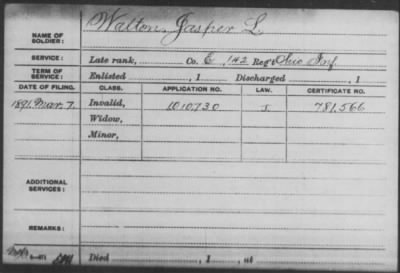 NAME OF SOLDIER: Walton, Jasper L.
SERVICE: Late rank, Co. E, 142 Reg't Ohio Inf
TERM OF SERVICE: Enlisted , 1 Discharged , 1
DATE OF FILING. CLASS. APPLICATION NO. LAW. CERTIFICATE NO.
1891 Mar. 7. Invalid, 1010,730 J. 781,566
Widow,
Minor,
ADDITIONAL SERVICES:
REMARKS:
Died , 1 , at